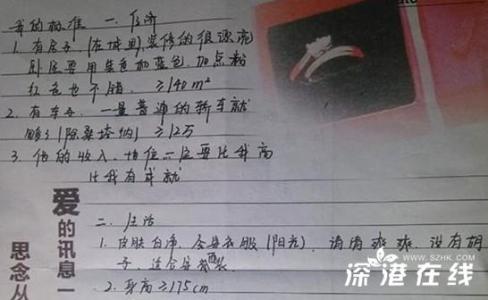 我的标准 一.经济
1. 有房子,(在城里)装修的很漂亮
卧室要用紫色加蓝色,加点粉
红色也不错. ≥140m²
2. 有车子,一量普通的轿车就
够了(除桑塔纳)≥12万
3. 他的收入、地位一定要比我高
比我有成就
二. 生活
1. 皮肤白净,会穿衣服(阳光),清清爽爽,没有胡
子,适合穿西装
2. 身高≥175cm
爱的讯息一
思念从
深港在线
WWW.SZHK.COM